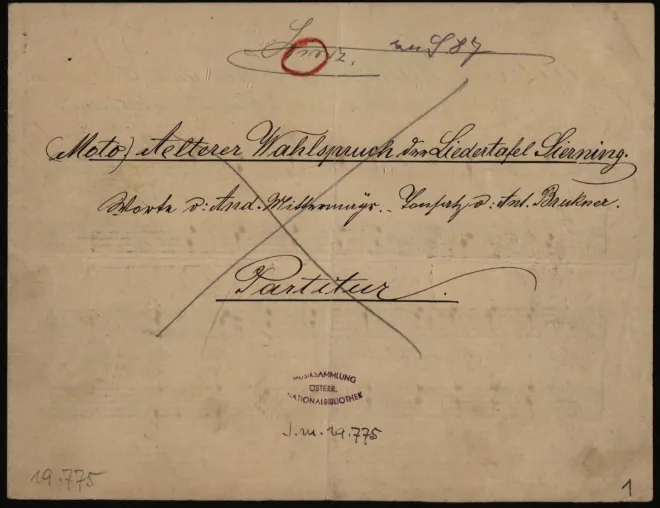 zu S 87
(Moto) Aelterer Wahlspruch der Liedertafel Sierning.
Worte v: And. Mittermayr. Tonsatz v: Ant. Brukner.
Partitur.
MUSIKSAMMLUNG
ÖSTERR.
NATIONALBIBLIOTHEK
S.m. 19.775
19.775
1